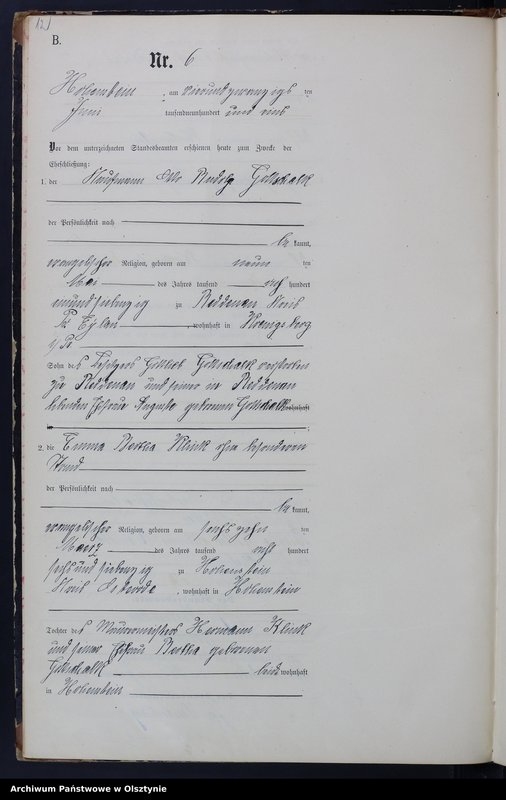 12)
B.
Nr. 6
Hohenstein, am vierundzwanzigs ten
Juni tausendneunhundert und eins
Vor dem unterzeichneten Standesbeamten erschienen heute zum Zwecke der
Eheschließung:
1. der Kaufmann Otto Rudolf Gottschalk
der Persönlichkeit nach
be kannt,
evangelischer Religion, geboren am neun ten
Mai des Jahres tausend acht hundert
neunundsiebenzig zu Reddenau Kreis
Pr. Eylau, wohnhaft in Koenigsberg
i/Pr
Sohn des Besitzers Gottlieb Gottschalk verstorben
zu Reddenau und seiner in Reddenau
lebenden Ehefrau Auguste geborenen Gottschalk wohnhaft
in
2. die Emma Bertha Klink ohne besonderen
Stand
der Persönlichkeit nach
be kannt,
evangelischer Religion, geboren am sechszehn ten
Maerz des Jahres tausend acht hundert
sechsundsiebenzig zu Hohenstein
Kreis Osterode, wohnhaft in Hohenstein
Tochter des Maurermeisters Hermann Klink
und seiner Ehefrau Bertha geborenen
Gottschalk beide wohnhaft
in Hohenstein
Archiwum Państwowe w Olsztynie